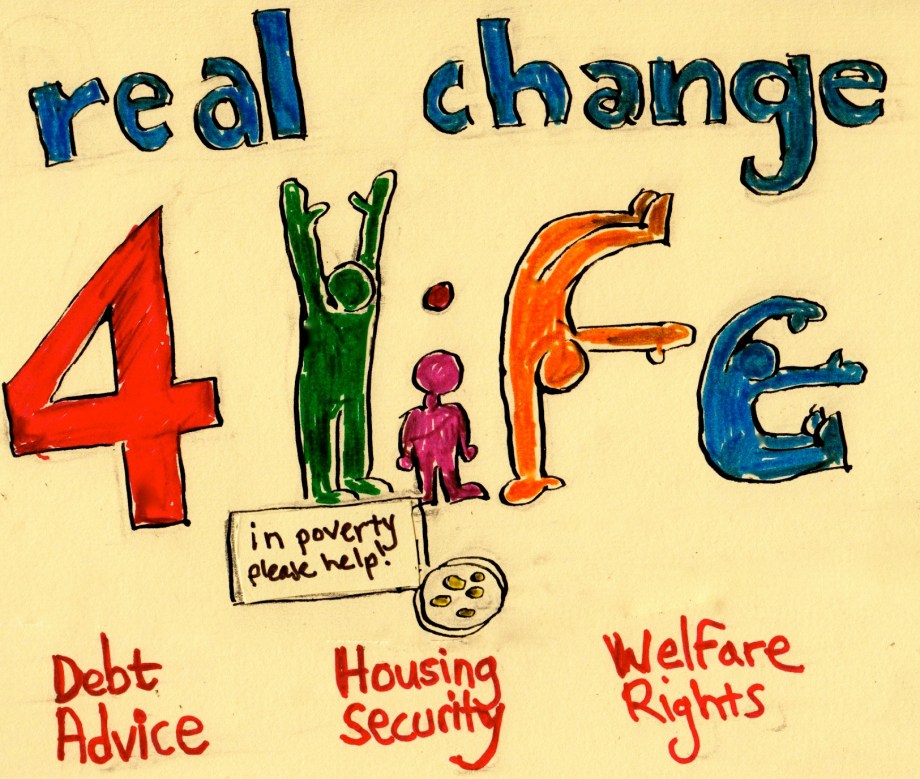 real change
4life
in poverty
please help!
Debt
Advice
Housing
Security
Welfare
Rights